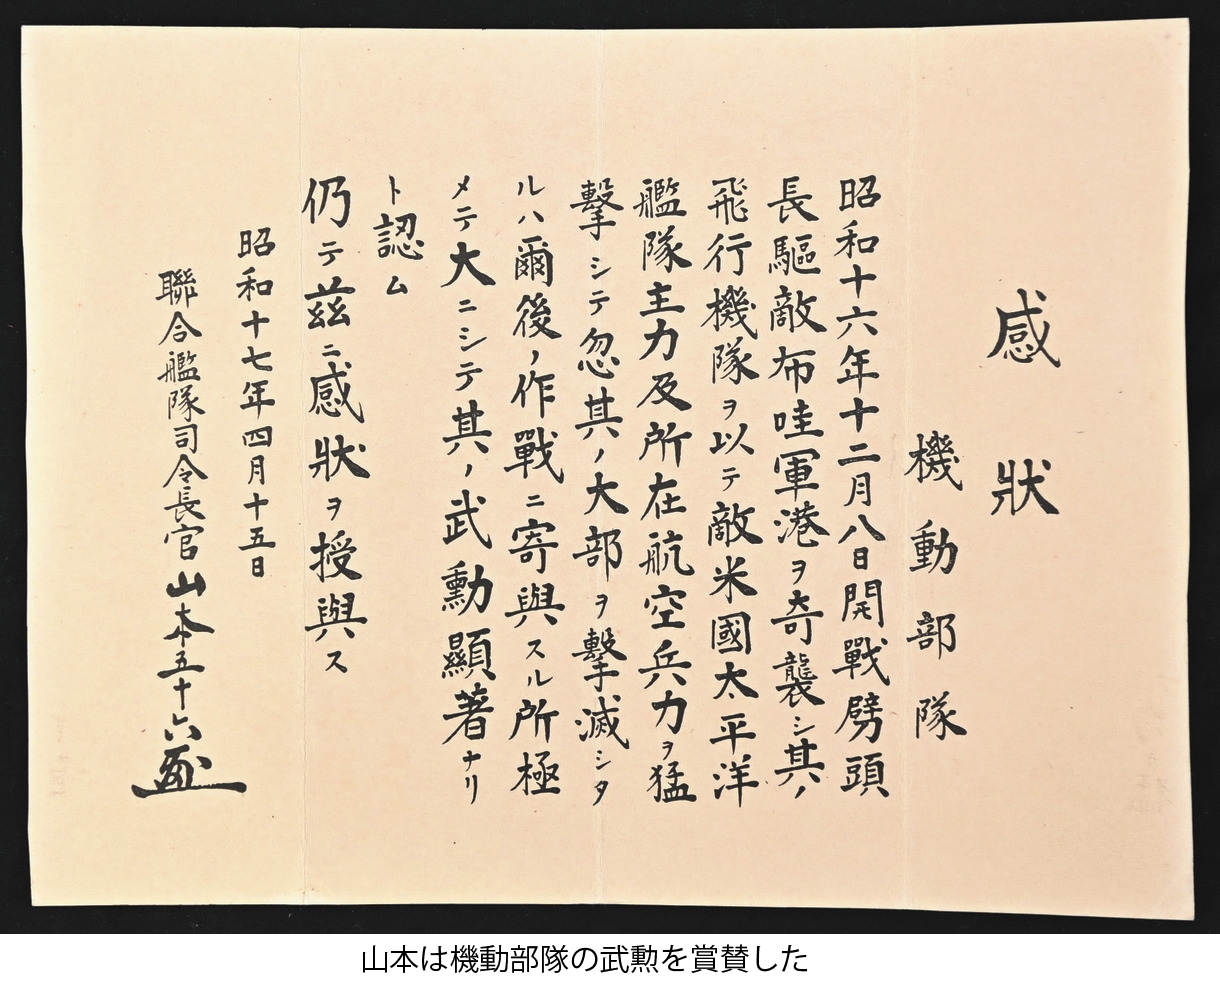 感狀
機動部隊
昭和十六年十二月八日開戰劈頭
長驅敵布哇軍港ヲ奇襲シ其ノ
飛行機隊ヲ以テ敵米國太平洋
艦隊主力及所在航空兵力ヲ猛
擊シテ忽其ノ大部ヲ擊滅シタ
ルハ爾後ノ作戰ニ寄與スル所極
メテ大ニシテ其ノ武勳顯著ナリ
ト認ム
仍テ茲ニ感狀ヲ授與ス
昭和十七年四月十五日
聯合艦隊司令長官山本五十六
山本は機動部隊の武勲を賞賛した